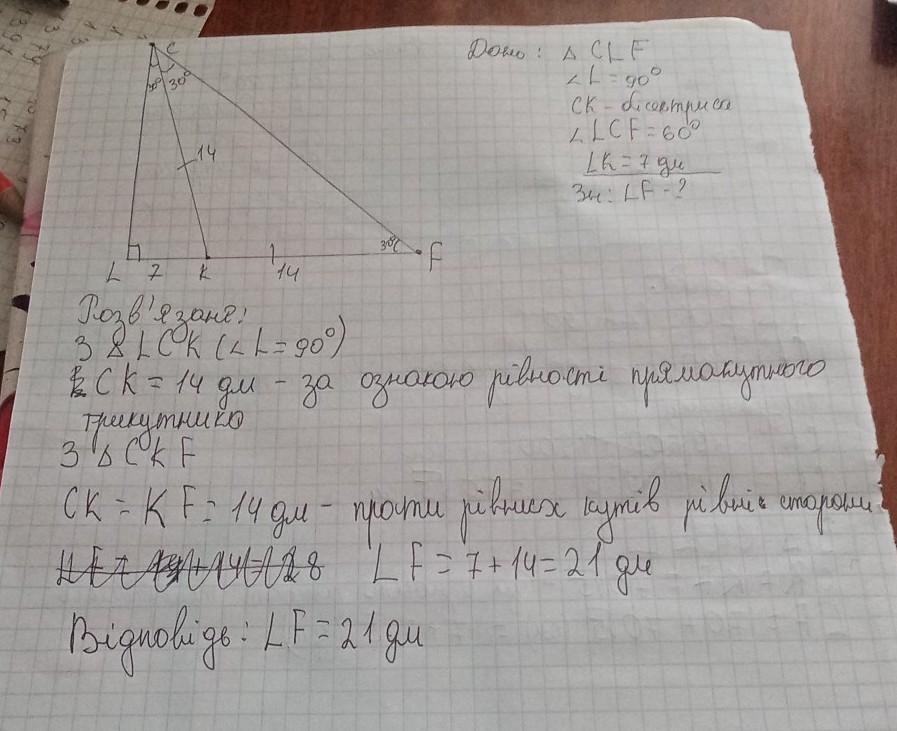 Дано: △ CLF
∠L = 90°
CK - бісектриса
∠LCF = 60°
LK = 7 дм
Зн: LF - ?
C
30° 30°
14
L 7 K 14 30° F
Розв'язаня:
З △ LCK (∠L = 90°)
CK = 14 дм - за ознакою рівності прямокутного
трикутника
З △ CKF
CK = KF = 14 дм - проти рівних кутів рівні сторони
LF = 7 + 14 = 21 дм
Відповідь: LF = 21 дм